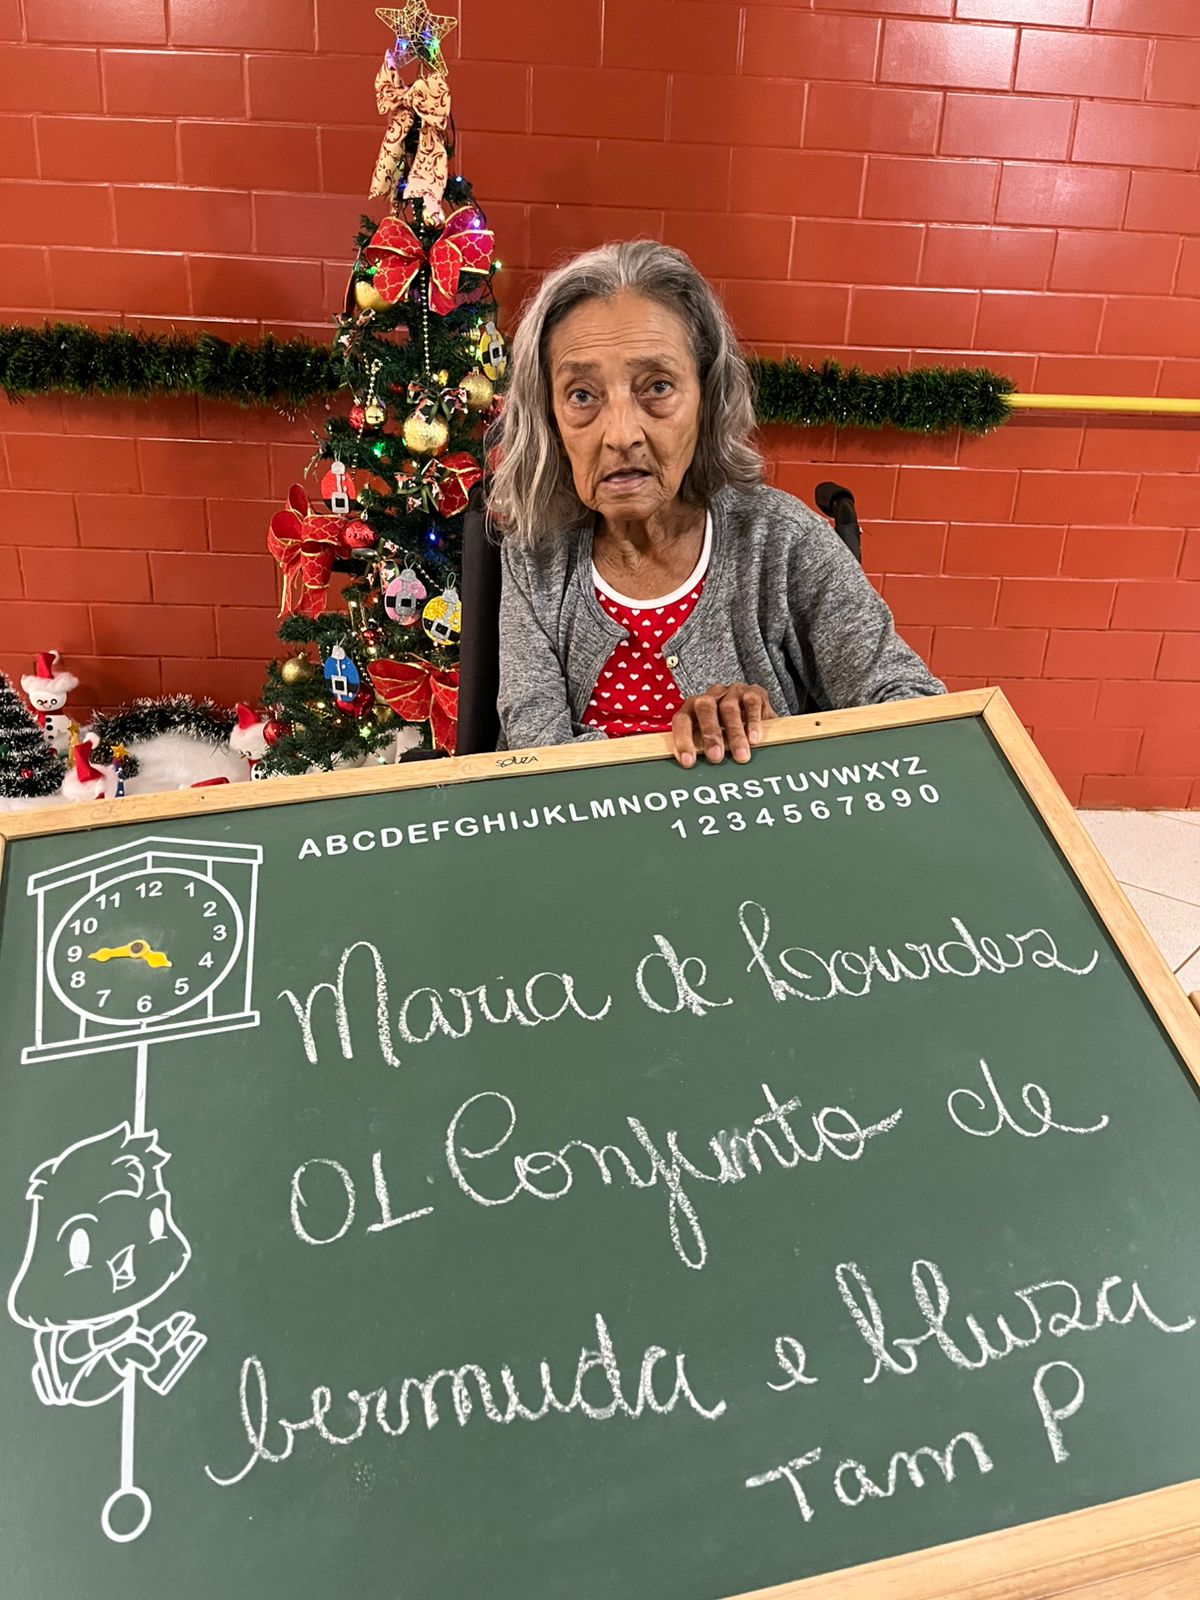 SOUZA
ABCDEFGHIJKLMNOPQRSTUVWXYZ
1234567890
12
1
2
3
4
5
6
7
8
9
10
11
Maria de Lourdes
01 Conjunto de
bermuda e bluza
Tam P